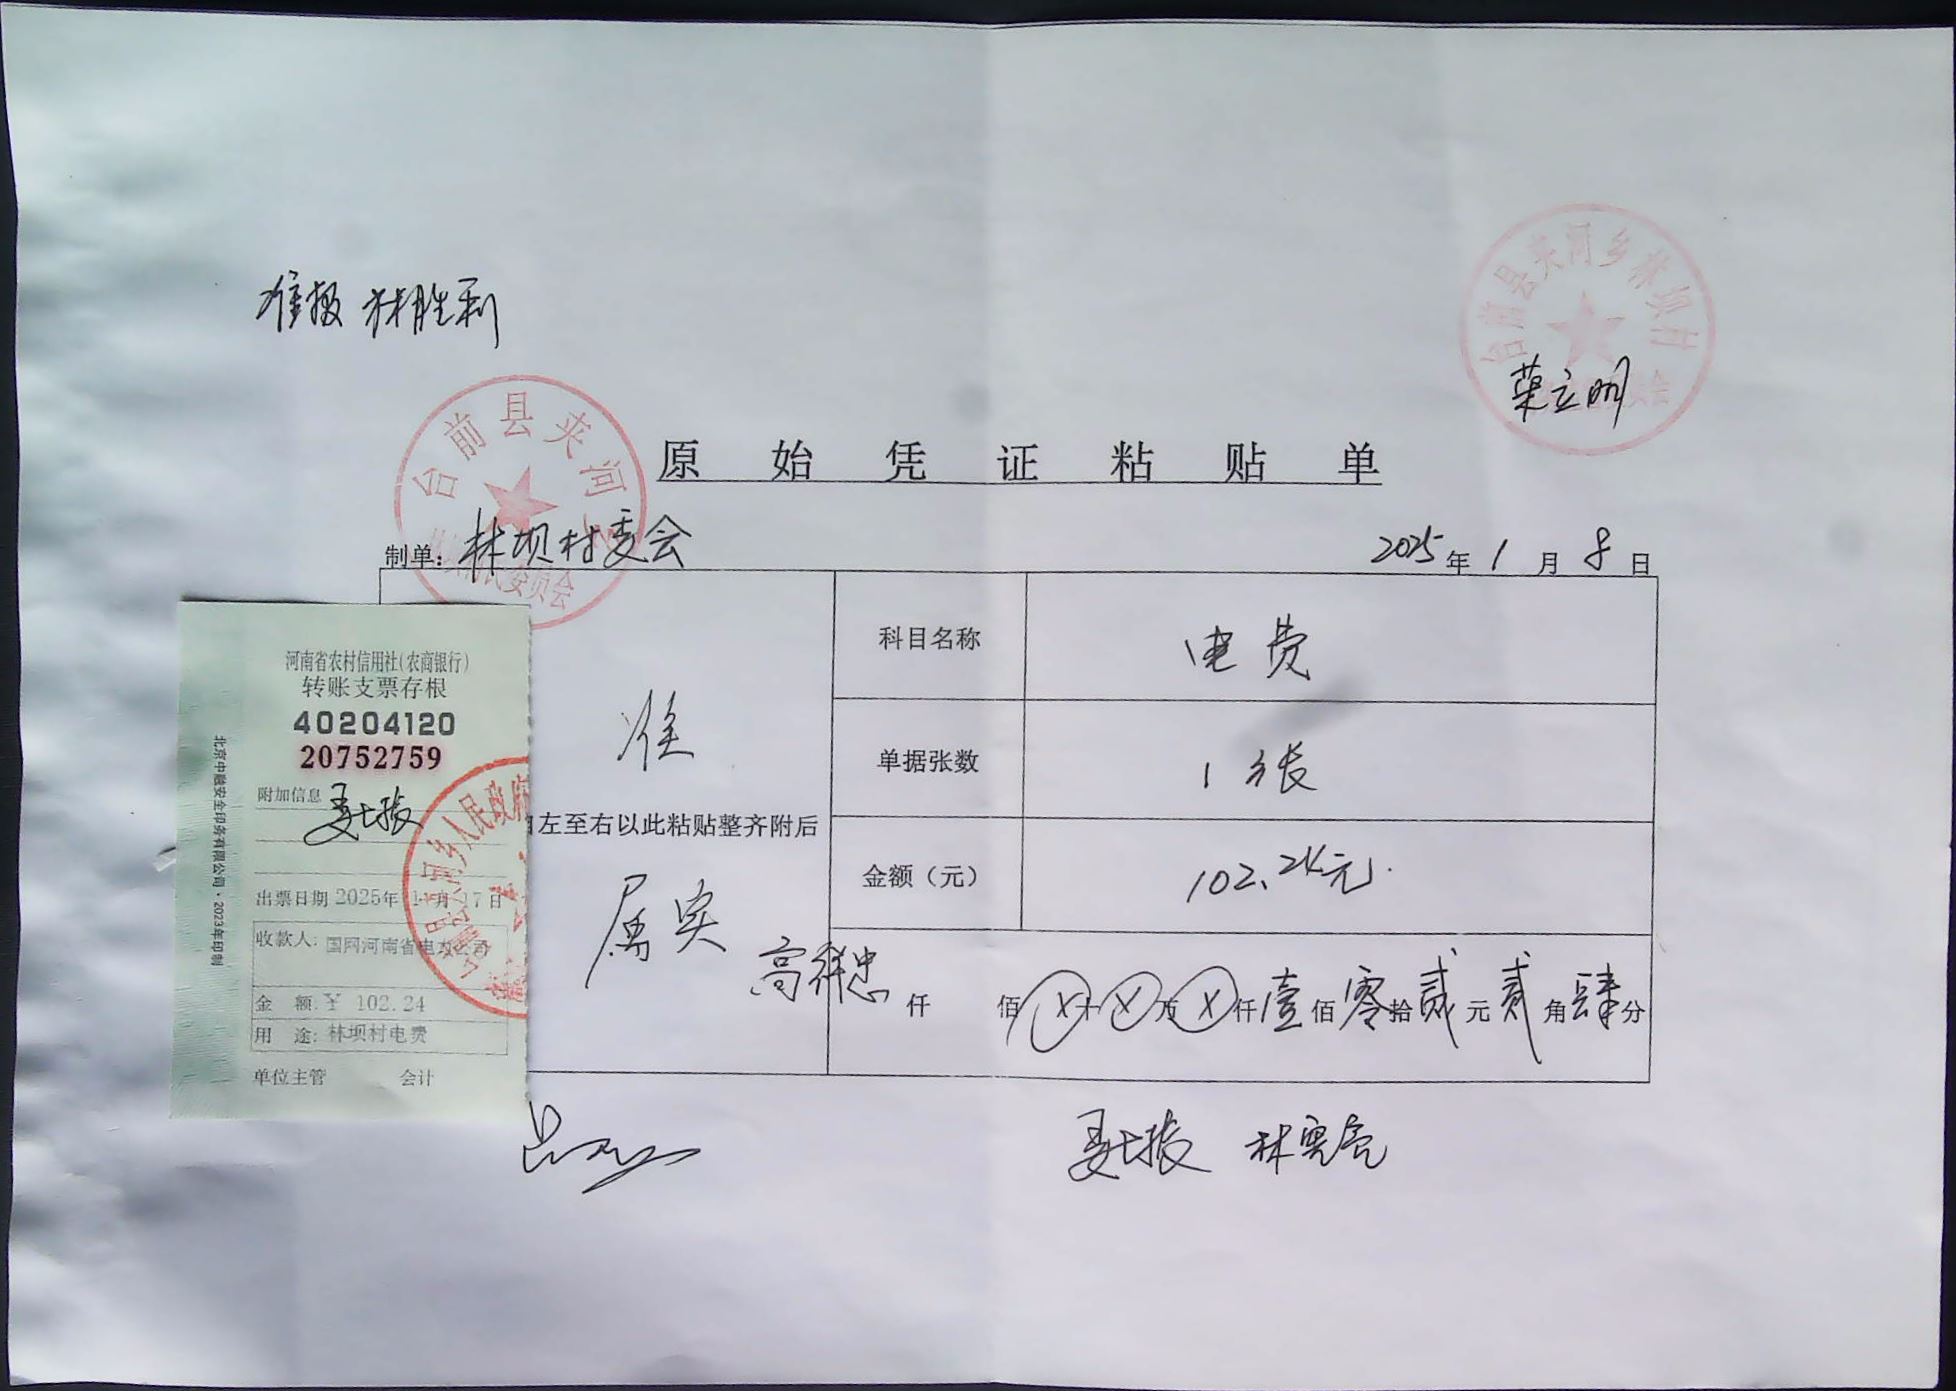 准报 林胜利
台前县夹河乡林坝村
荣立明
台前县夹河
原始凭证粘贴单
制单: 林坝村委会
2025年1月8日
科目名称 电费
准
单据张数 1张
左至右以此粘贴整齐附后
金额（元） 102.24元.
属实
高祥忠
仟 佰 ⓧ十ⓧ万ⓧ仟壹佰零拾贰元贰角肆分
河南省农村信用社(农商银行)
转账支票存根
40204120
20752759
附加信息
出票日期 2025年 1 月 17 日
收款人: 国网河南省电力公司
金 额: ¥ 102.24
用 途: 林坝村电费
单位主管 会计
北京中融安全印务有限公司·2023年印制
乡人民政府